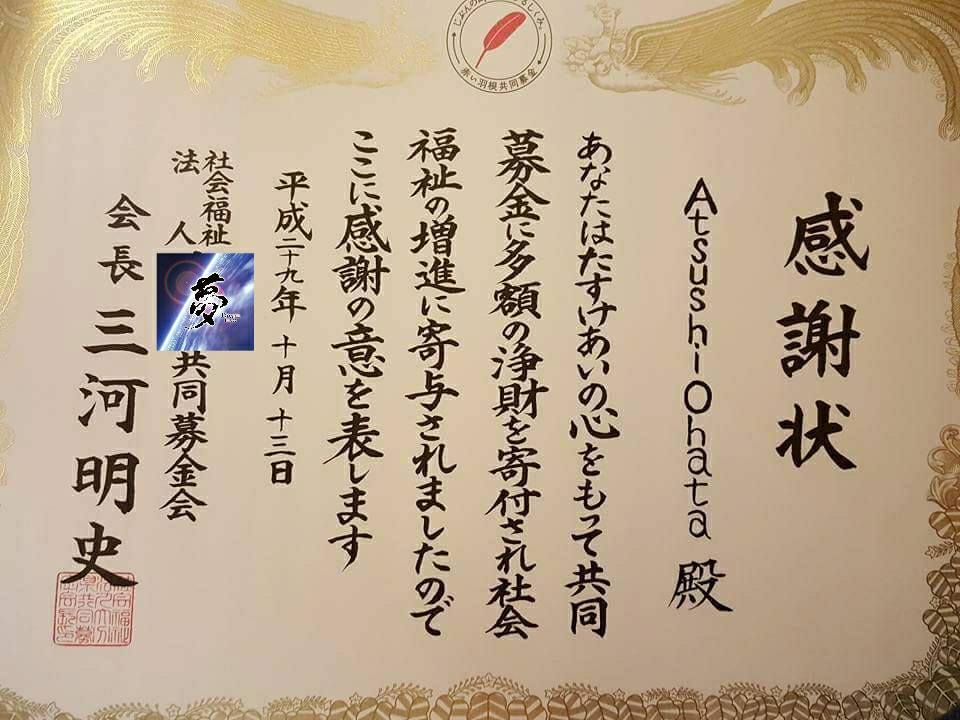 赤い羽根共同募金
感謝状
Atsushi Ohata 殿
あなたはたすけあいの心をもって共同
募金に多額の浄財を寄付され社会
福祉の増進に寄与されましたので
ここに感謝の意を表します
平成二十九年十月十三日
社会福祉
法人
共同募金会
会長 三河明史
夢